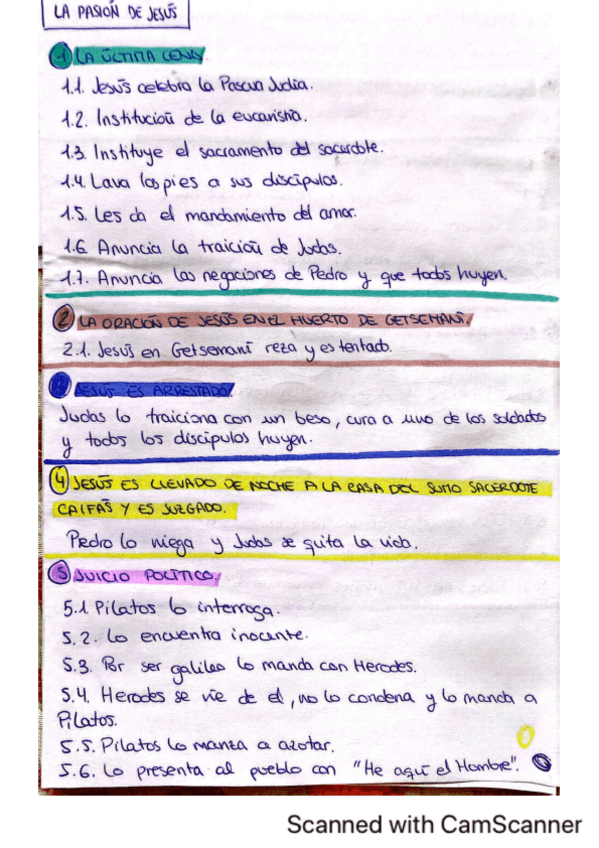 LA PASIÓN DE JESÚS
1 LA ÚLTIMA CENA.
1.1. Jesús celebra la Pascua Judia.
1.2. Institución de la eucaristía.
1.3. Instituye el sacramento del sacerdote.
1.4. Lava los pies a sus discípulos.
1.5. Les da el mandamiento del amor.
1.6. Anuncia la traición de Judas.
1.7. Anuncia las negaciones de Pedro y que todos huyen.
2 LA ORACIÓN DE JESÚS EN EL HUERTO DE GETSEMANÍ.
2.1. Jesús en Getsemaní reza y es tentado.
JESÚS ES ARRESTADO.
Judas lo traiciona con un beso, cura a uno de los soldados
y todos los discípulos huyen.
4 JESÚS ES LLEVADO DE NOCHE A LA CASA DEL SUMO SACERDOTE
CAIFÁS Y ES JUZGADO.
Pedro lo niega y Judas se quita la vida.
5 JUICIO POLÍTICO.
5.1 Pilatos lo interroga.
5.2. Lo encuentra inocente.
5.3. Por ser galileo lo manda con Herodes.
5.4. Herodes se rie de el, no lo condena y lo manda a
Pilatos.
5.5. Pilatos lo manza a azotar.
5.6. Lo presenta al pueblo con "He aquí el Hombre".
Scanned with CamScanner